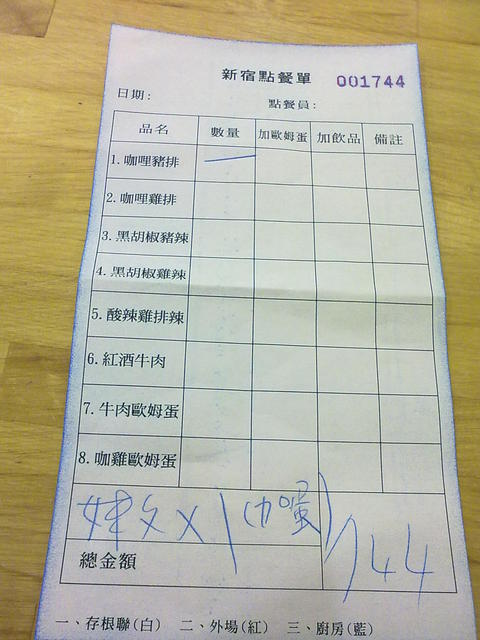 新宿點餐單 001744
日期:
點餐員:
品名 數量 加歐姆蛋 加飲品 備註
1.咖哩豬排 一
2.咖哩雞排
3.黑胡椒豬辣
4.黑胡椒雞辣
5.酸辣雞排辣
6.紅酒牛肉
7.牛肉歐姆蛋
8.咖雞歐姆蛋
X 1 (加蛋)
144
總金額
一、存根聯(白) 二、外場(紅) 三、廚房(藍)